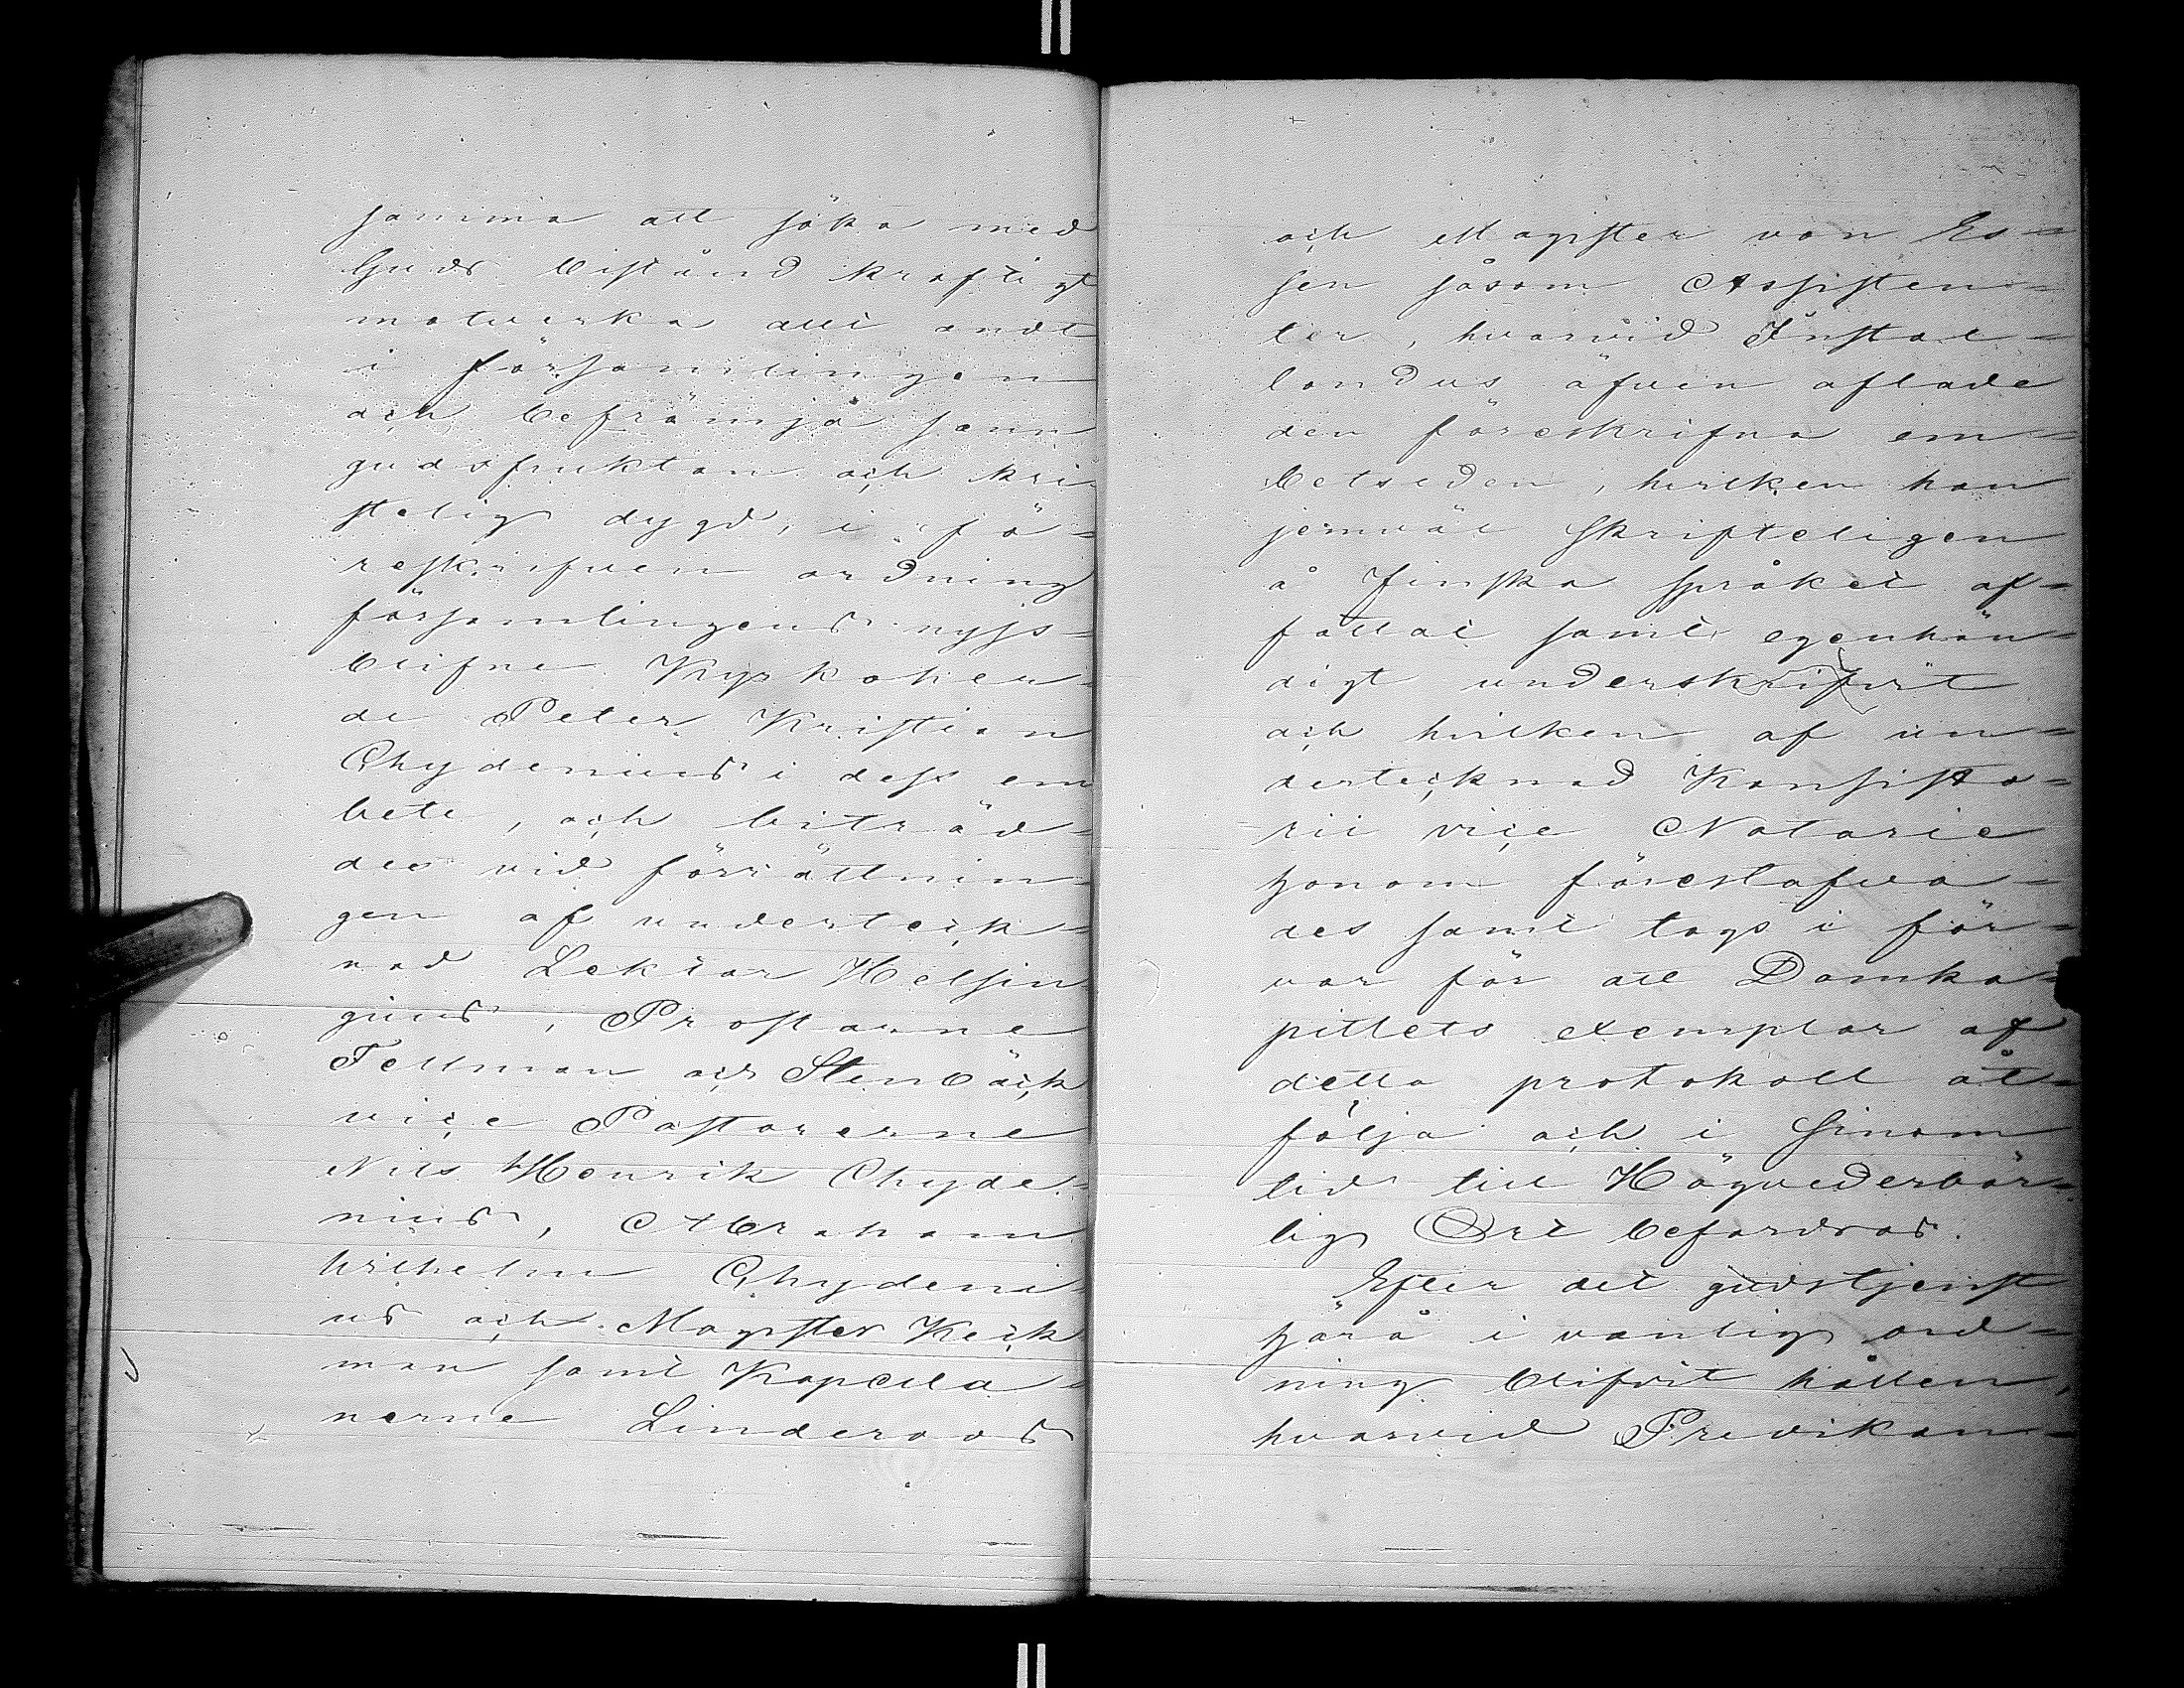 samma att söka med
Guds bistånd kraftigt
motverka allt ondt
i församlingen
och befrämja sann
gudsfruktan och kri-
stelig dygd, i fö-
reskrifven ordning
församlingens nyss-
blifne Kyrkoher-
de Peter Kristian
Chydenius i dess em
bete, och biträd-
des vid förrättnin-
gen af underteck-
nad Lektor Helsin
gius, Prostarne
Fellman och Stenbäck
vice Pastorerne
Nils Henrik Chyde-
nius, Abraham
Wilhelm Chydeni-
us och Magister Keck
man samt Kapella-
nerne Linderoos
och Magister von Es-
sen såsom Assisten-
ter, hvarvid Instal-
landus äfven aflade
den föreskrifna em-
betseden, hvilken han
jemväl skrifteligen
å Finska språket af-
fattat samt egenhän-
digt underskrifvit
och hvilken af un-
dertecknad Konsisto-
rii vice Notarie
honom förestafva-
des samt togs i för-
var för att Domka-
pitlets exemplar af
detta protokoll åt-
följa och i sinom
tid till Högvederbör-
lig Ort befordras.
Efter det gudstjenst
härå i vanlig ord-
ning blifvit hållen,
hvarvid Predikan-